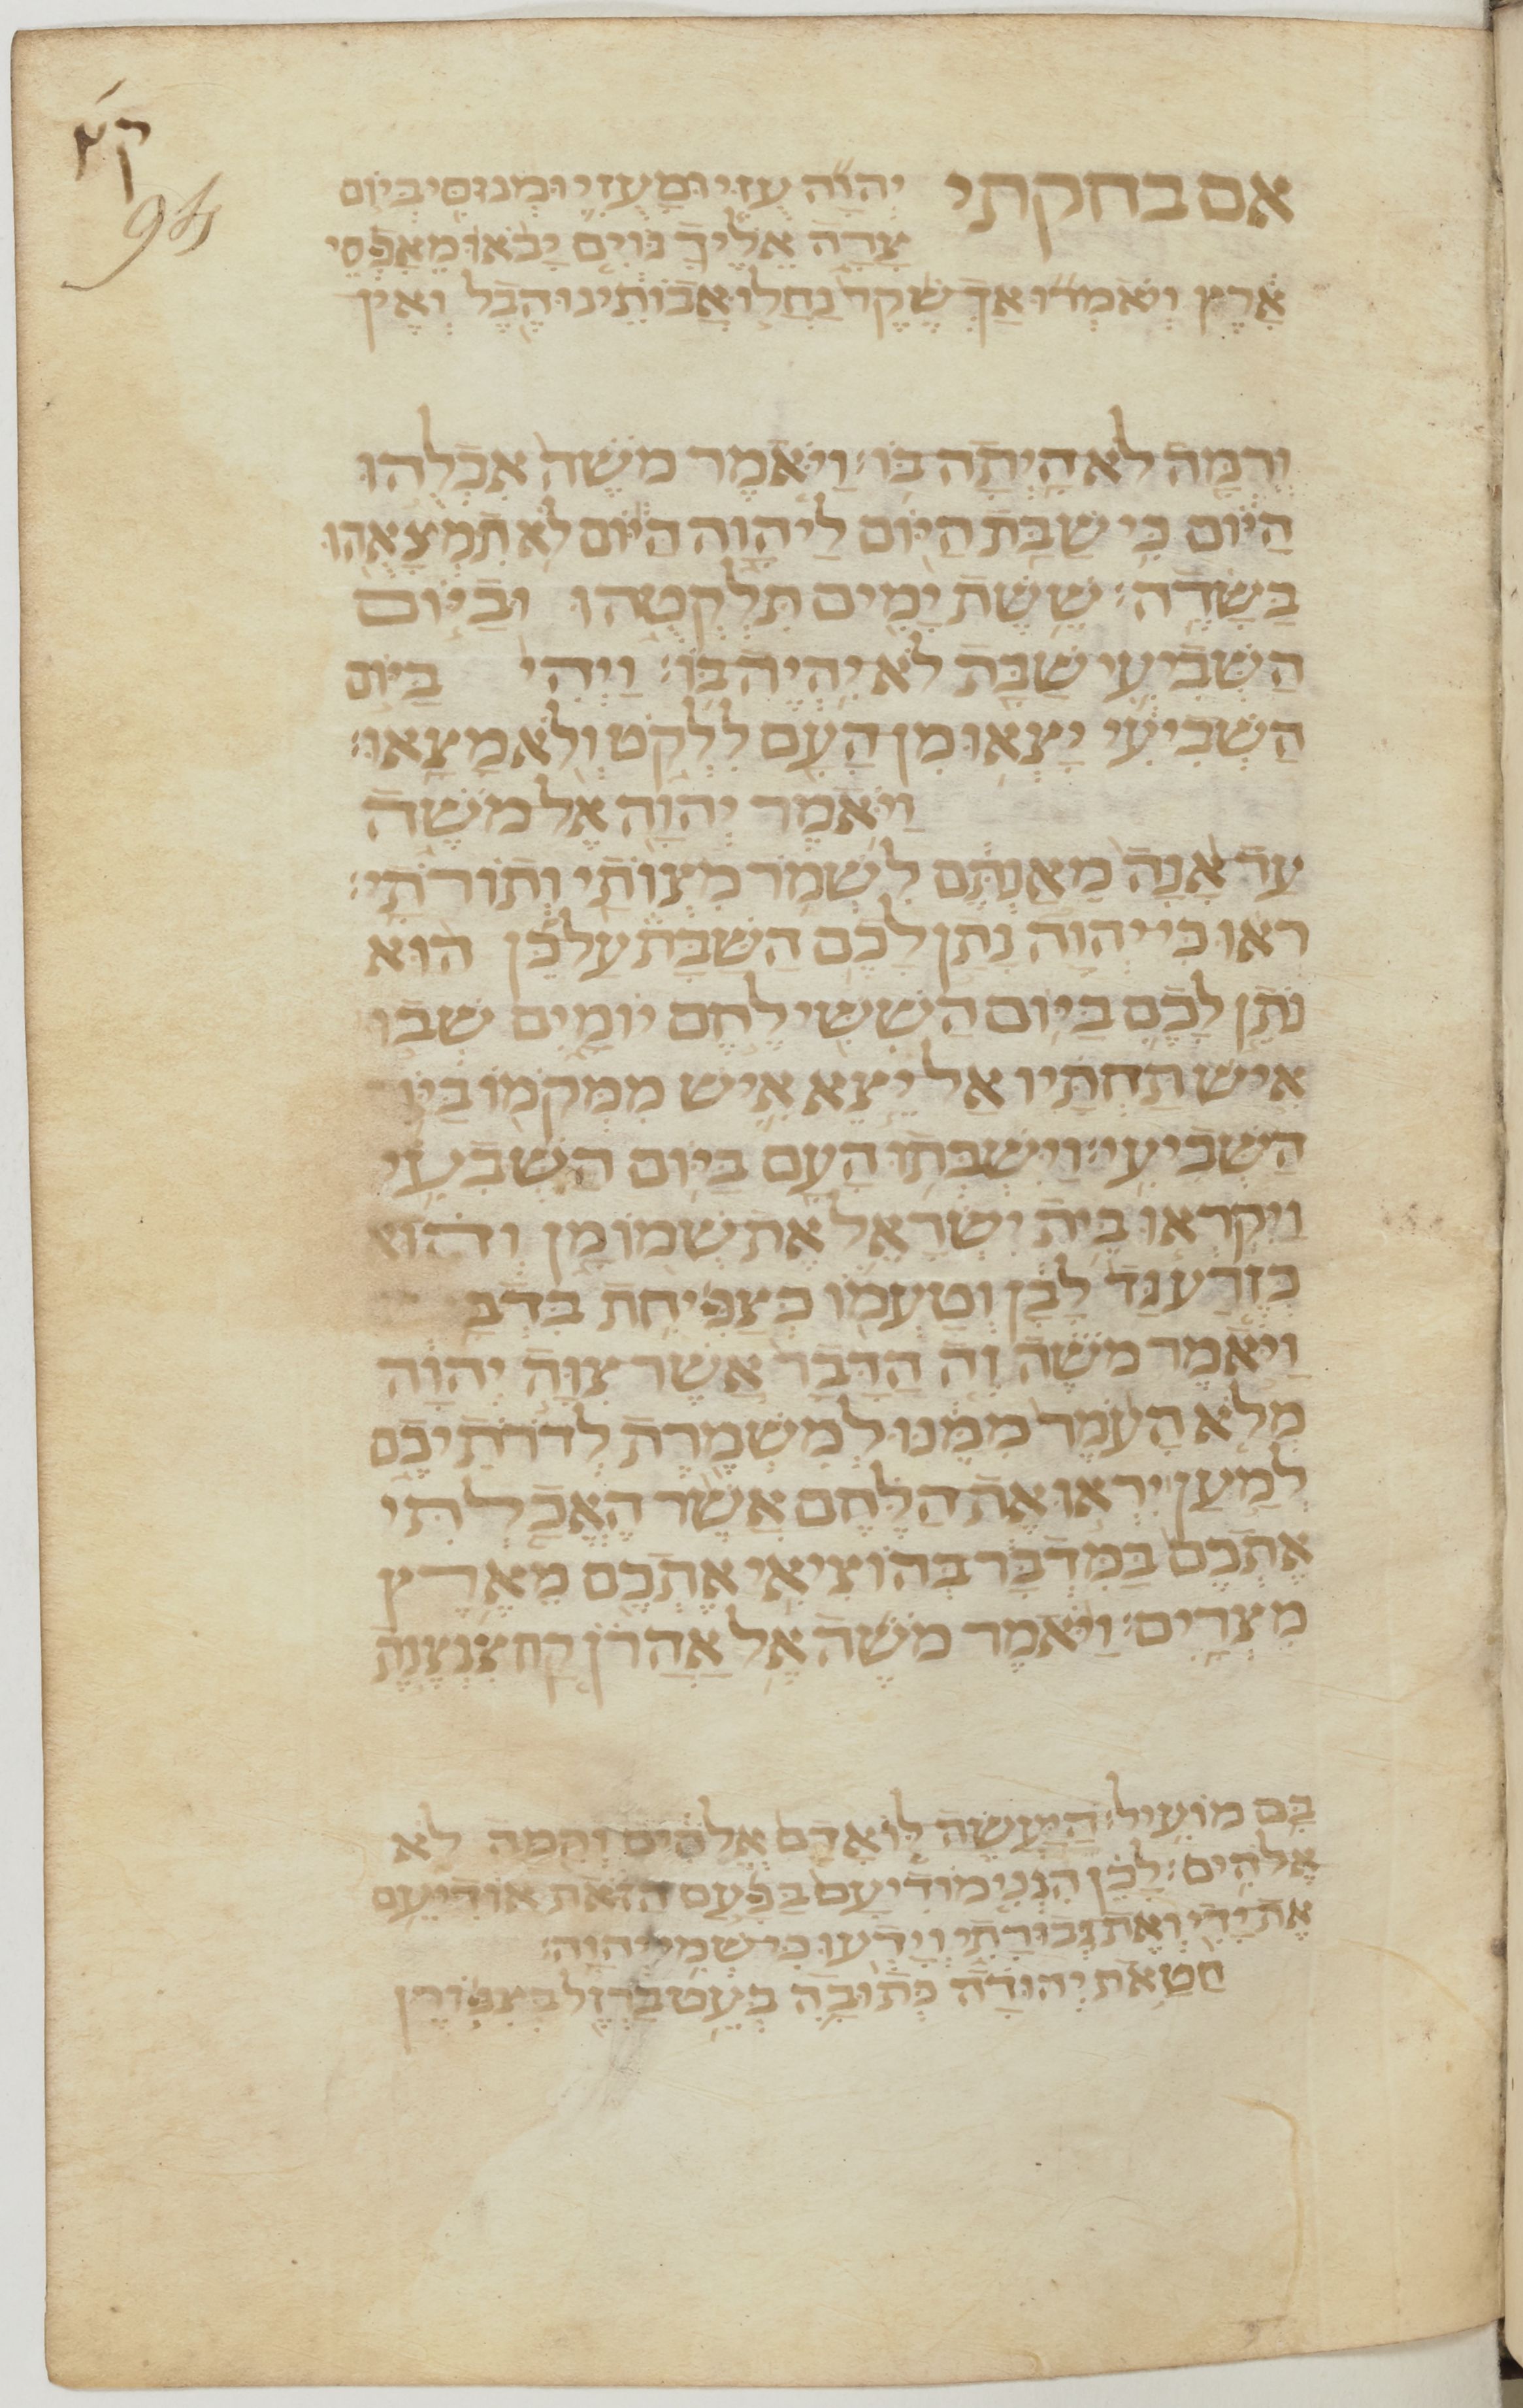 94
אם בחקתי
יהוה עזי ומעזי ומנוסי ביום
צרה אליך גוים יבאו מאפסי
ארץ ויאמרו אך שקר נחלו אבותינו הבל ואין
ורמה לא היתה בו׃ ויאמר משה אכלהו
היום כי שבת היום ליהוה היום לא תמצאהו
בשדה׃ ששת ימים תלקטהו וביום
השביעי שבת לא יהיה בו׃ ויהי ביום
השביעי יצאו מן העם ללקט ולא מצאו׃
ויאמר יהוה אל משה
עד אנה מאנתם לשמר מצותי ותורתי׃
ראו כי יהוה נתן לכם השבת על כן הוא
נתן לכם ביום הששי לחם יומים שבו
איש תחתיו אל יצא איש ממקמו ביו
השביעי׃ וישבתו העם ביום השבעי
ויקראו בית ישראל את שמו מן והוא
כזרע גד לבן וטעמו כצפיחת בדב
ויאמר משה זה הדבר אשר צוה יהוה
מלא העמר ממנו למשמרת לדרתיכם
למען יראו את הלחם אשר האכלתי
אתכם במדבר בהוציאי אתכם מארץ
מצרים׃ ויאמר משה אל אהרן קח צנצנת
בם מועיל׃ היעשה לו אדם אלהים והמה לא
אלהים׃ לכן הנני מודיעם בפעם הזאת אודיעם
את ידי ואת גבורתי וידעו כי שמי יהוה׃
חטאת יהודה כתובה בעט ברזל בצפורן